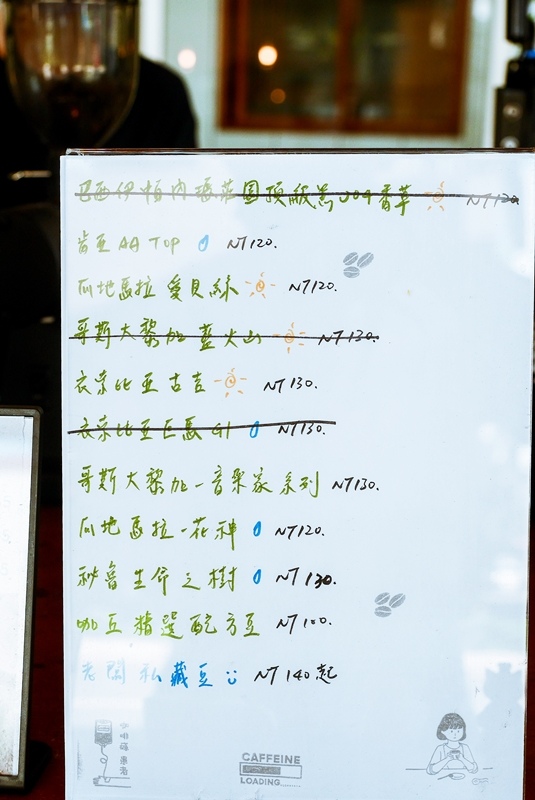 巴西伊帕內瑪莊園頂級黑J04香草 NT120
肯亞AA TOP NT120.
瓜地馬拉 愛貝絲 NT120.
哥斯大黎加 藍火山 NT130.
衣索比亞古吉 NT130.
衣索比亞巨馬G1 NT130.
哥斯大黎加-音樂家系列 NT130.
瓜地馬拉-花神 NT120.
秘魯生命之樹 NT130.
咖豆精選配方豆 NT100.
老闆私藏豆 NT140起
CAFFEINE
LOADING........